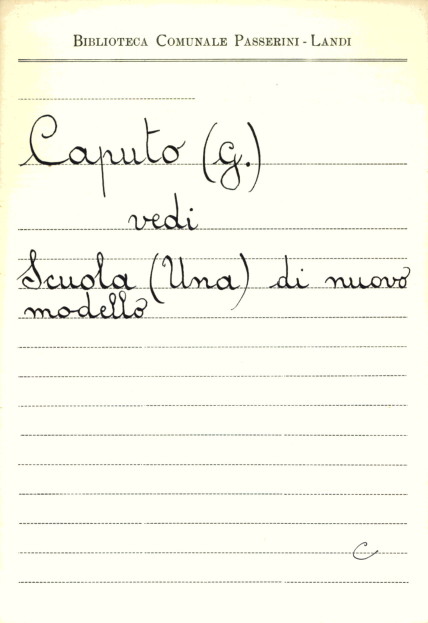 BIBLIOTECA COMUNALE PASSERINI - LANDI
Caputo (G.)
vedi
Scuola (Una) di nuovo
modello
C